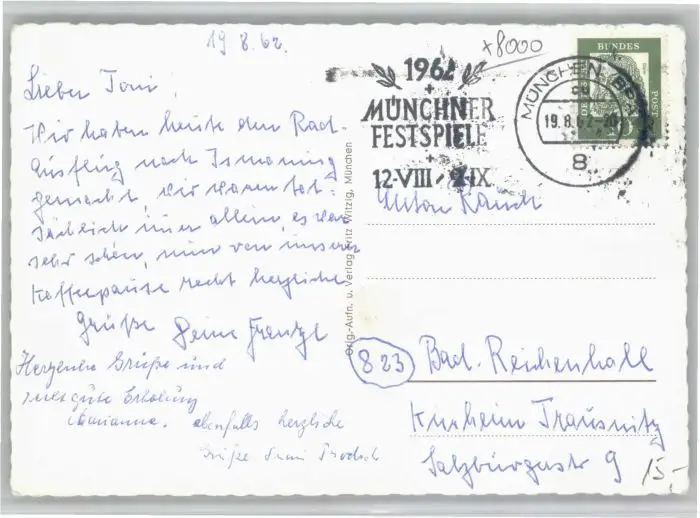 19.8.62.
x8000
Lieber Toni,
Wir haben heute den Rad-
ausflug nach Ismaning
gemacht, wir waren tat-
sächlich immer allein, es war
sehr schön, nun von unserer
Kaffeepause recht herzliche
Grüße Deine Frenzl
Herzliche Grüße und
recht gute Erholung
Marianne. ebenfalls herzliche
Grüße
Orig.-Aufn. u. Verlag Fritz Witzig, München
1962
+
MÜNCHNER
FESTSPIELE
+
12·VIII / IX
MÜNCHEN BPA
cd
19.8.62-20
8
BUNDES
POST
DEUTSCHE
Anton Rausch
823 Bad. Reichenhall
Kurheim Trausnitz
Salzburgerstr 9
15,-